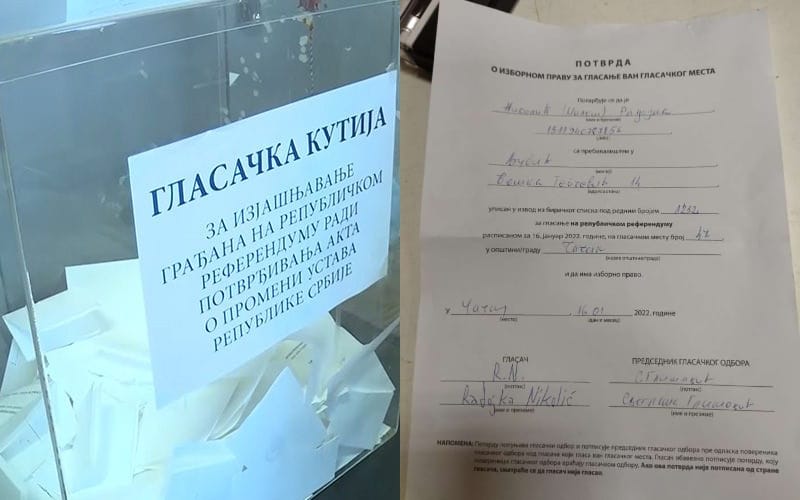 ГЛАСАЧКА КУТИЈА
ЗА ИЗЈАШЊАВАЊЕ
ГРАЂАНА НА РЕПУБЛИЧКОМ
РЕФЕРЕНДУМУ РАДИ
ПОТВРЂИВАЊА АКТА
О ПРОМЕНИ УСТАВА
РЕПУБЛИКЕ СРБИЈЕ
ПОТВРДА
О ИЗБОРНОМ ПРАВУ ЗА ГЛАСАЊЕ ВАН ГЛАСАЧКОГ МЕСТА
Потврђује се да је
Николић Радојка
(име и презиме)
са пребивалиштем у
(место)
14
(адреса стана)
уписан у извод из бирачког списка под редним бројем 1232.
за гласање на републичком референдуму
расписаном за 16. јануар 2022. године, на гласачком месту број 47
у општини/граду Чачак
(назив општине/града)
и да има изборно право.
У Чачку, 16.01 2022. године
(место) (дан и месец)
ГЛАСАЧ ПРЕДСЕДНИК ГЛАСАЧКОГ ОДБОРА
R.N.
(потпис) (потпис)
Radojka Nikolić
(име и презиме) (име и презиме)
НАПОМЕНА: Потврду попуњава гласачки одбор и потписује председник гласачког одбора пре одласка повереника
гласачког одбора код гласача који гласа ван гласачког места. Гласач обавезно потписује потврду, коју
повереници гласачког одбора враћају гласачком одбору. Ако ова потврда није потписана од стране
гласача, сматраће се да гласач није гласао.